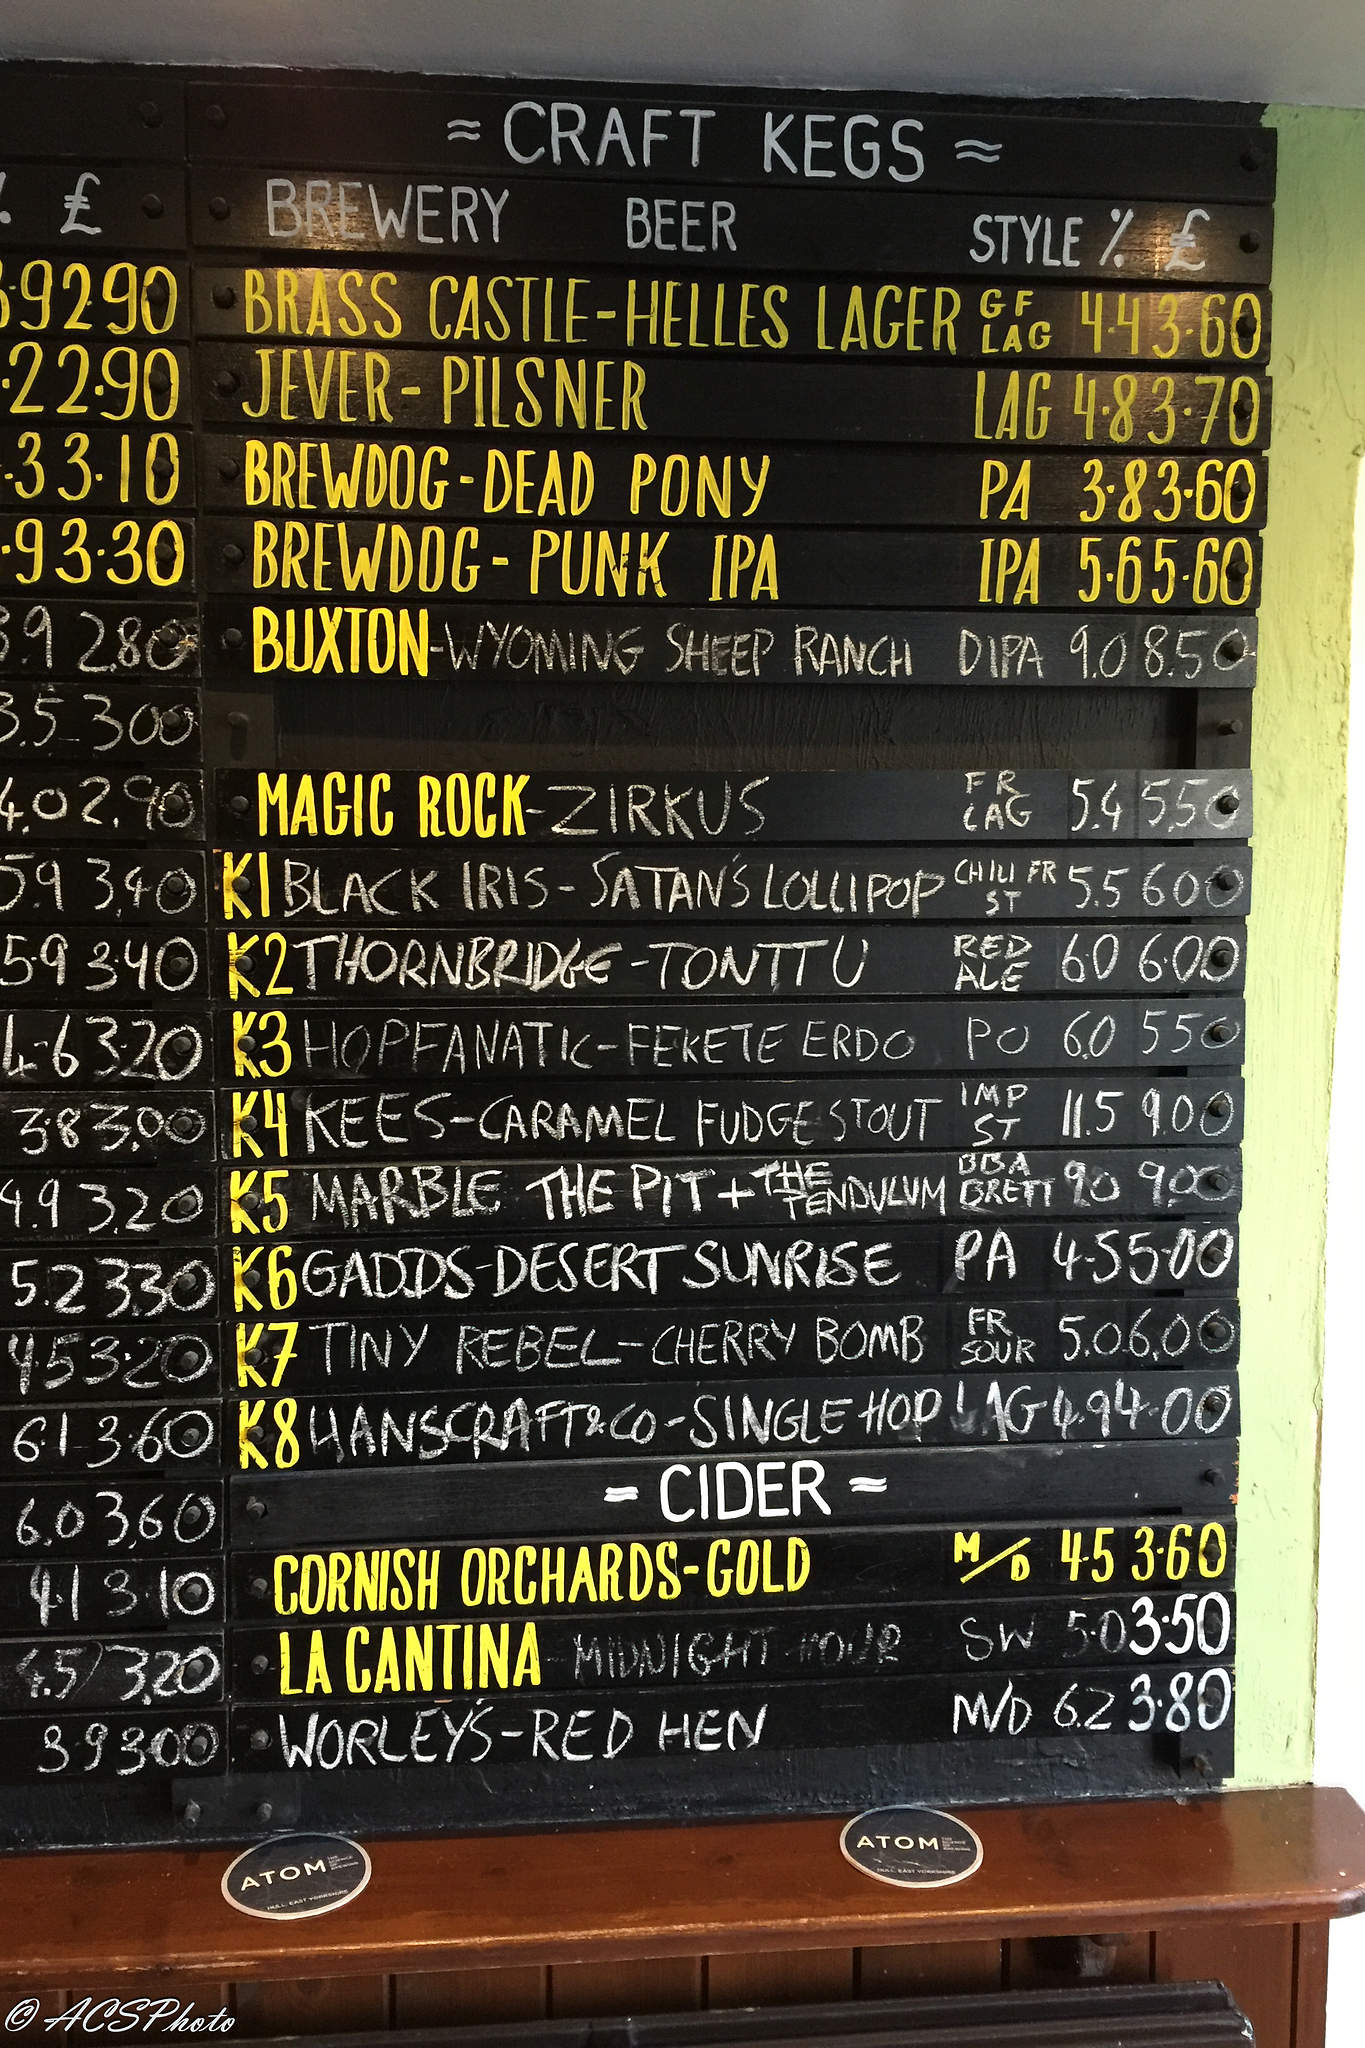 = CRAFT KEGS =
£ BREWERY BEER STYLE % £
3.9 2.90 BRASS CASTLE-HELLES LAGER GF LAG 4.4 3.60
.2 2.90 JEVER-PILSNER LAG 4.8 3.70
.3 3.10 BREWDOG-DEAD PONY PA 3.8 3.60
.9 3.30 BREWDOG-PUNK IPA IPA 5.6 5.60
3.9 2.80 BUXTON-WYOMING SHEEP RANCH DIPA 9.0 8.50
3.5 3.00
4.0 2.90 MAGIC ROCK-ZIRKUS FR LAG 5.4 5.50
5.9 3.40 K1 BLACK IRIS-SATAN'S LOLLIPOP CHILI FR ST 5.5 6.00
5.9 3.40 K2 THORNBRIDGE-TONTTU RED ALE 6.0 6.00
4.6 3.20 K3 HOPFANATIC-FEKETE ERDO PO 6.0 5.50
3.8 3.00 K4 KEES-CARAMEL FUDGE STOUT IMP ST 11.5 9.00
4.9 3.20 K5 MARBLE THE PIT + THE PENDULUM BBA BRETT 9.0 9.00
5.2 3.30 K6 GADDS-DESERT SUNRISE PA 4.5 5.00
4.5 3.20 K7 TINY REBEL-CHERRY BOMB FR SOUR 5.0 6.00
6.1 3.60 K8 HANSCRAFT & CO-SINGLE HOP LAG 4.9 4.00
= CIDER =
6.0 3.60
4.1 3.10 CORNISH ORCHARDS-GOLD M/D 4.5 3.60
4.5 3.20 LA CANTINA MIDNIGHT HOUR SW 5.0 3.50
3.9 3.00 WORLEY'S-RED HEN M/D 6.2 3.80
ATOM
HULL, EAST YORKSHIRE
ATOM
HULL, EAST YORKSHIRE
© ACSPhoto